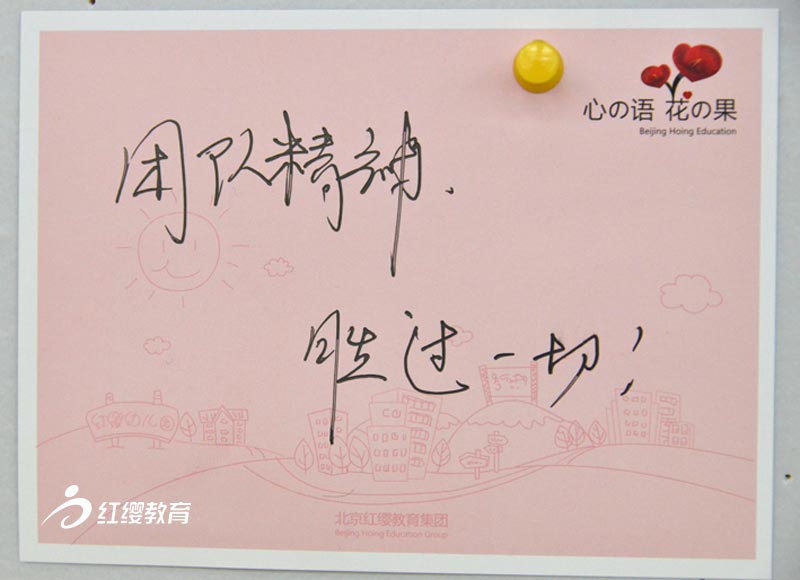 心の语 花の果
Beijing Hoing Education
团队精神、
胜过一切！
红缨幼儿园
红缨教育
北京红缨教育集团
Beijing Hoing Education Group